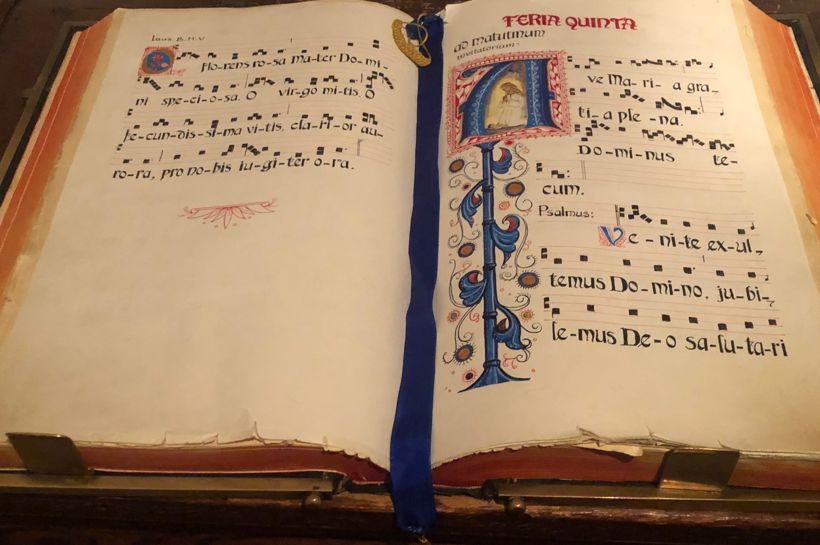 laus B.M.V
O flo-rens ro-sa ma-ter Do-mi-
ni spe-ci-o-sa. O vir-go mi-tis, O
fe-cun-dis-si-ma vi-tis, cla-ri-or au-
ro-ra, pro no-bis iu-gi-ter o-ra.
FERIA QUINTA
ad matutinum
invitatorium:
A ve Ma-ri-a gra-
ti-a ple-na.
Do-mi-nus te-
cum.
Psalmus:
Ve-ni-te ex-ul-
temus Do-mi-no, ju-bi-
le-mus De-o sa-lu-ta-ri